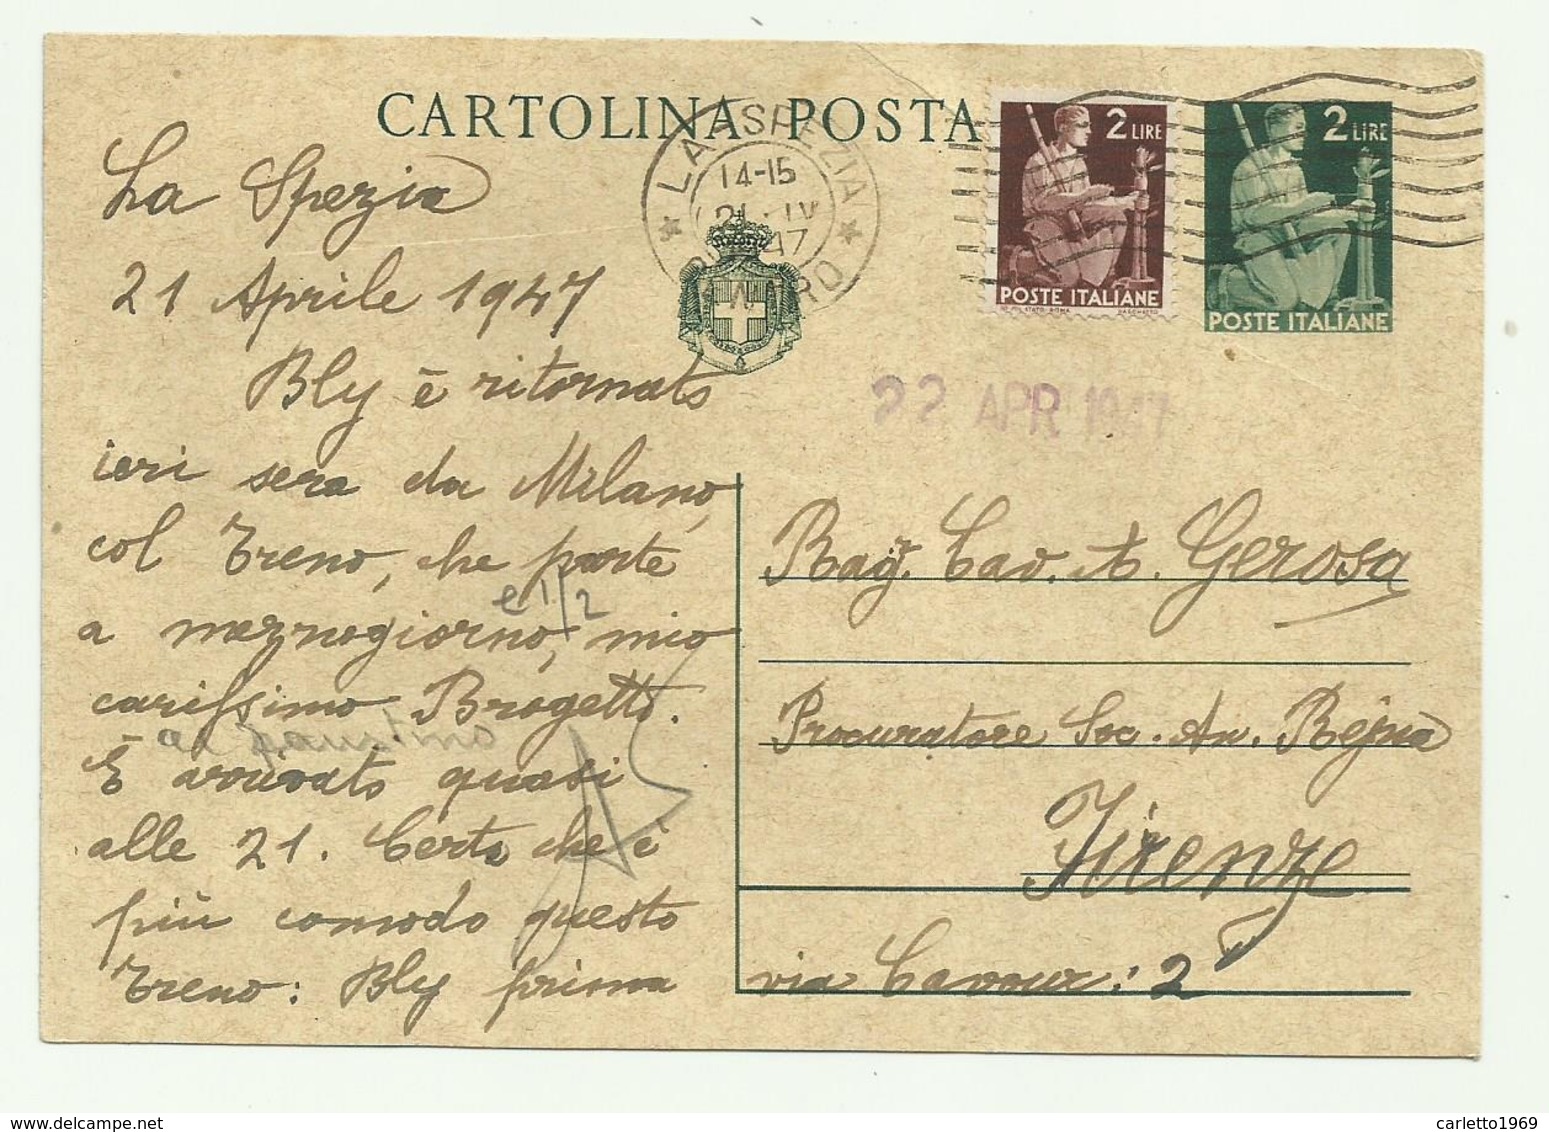 CARTOLINA POSTA
LA SPEZIA
14-15
21-IV
47
2 LIRE
POSTE ITALIANE
2 LIRE
POSTE ITALIANE
22 APR 1947
La Spezia
21 Aprile 1947
Bly è ritornato
ieri sera da Milano,
col Treno, che parte
e 1/2
a mezzogiorno, mio
carissimo Brogetto.
È arrivato quasi
alle 21. Certo che è
più comodo questo
Treno: Bly prima
Rag. Cav. A. Gerosa
Procuratore Soc. An. Rejna
Firenze
via Cavour: 2
carletto1969